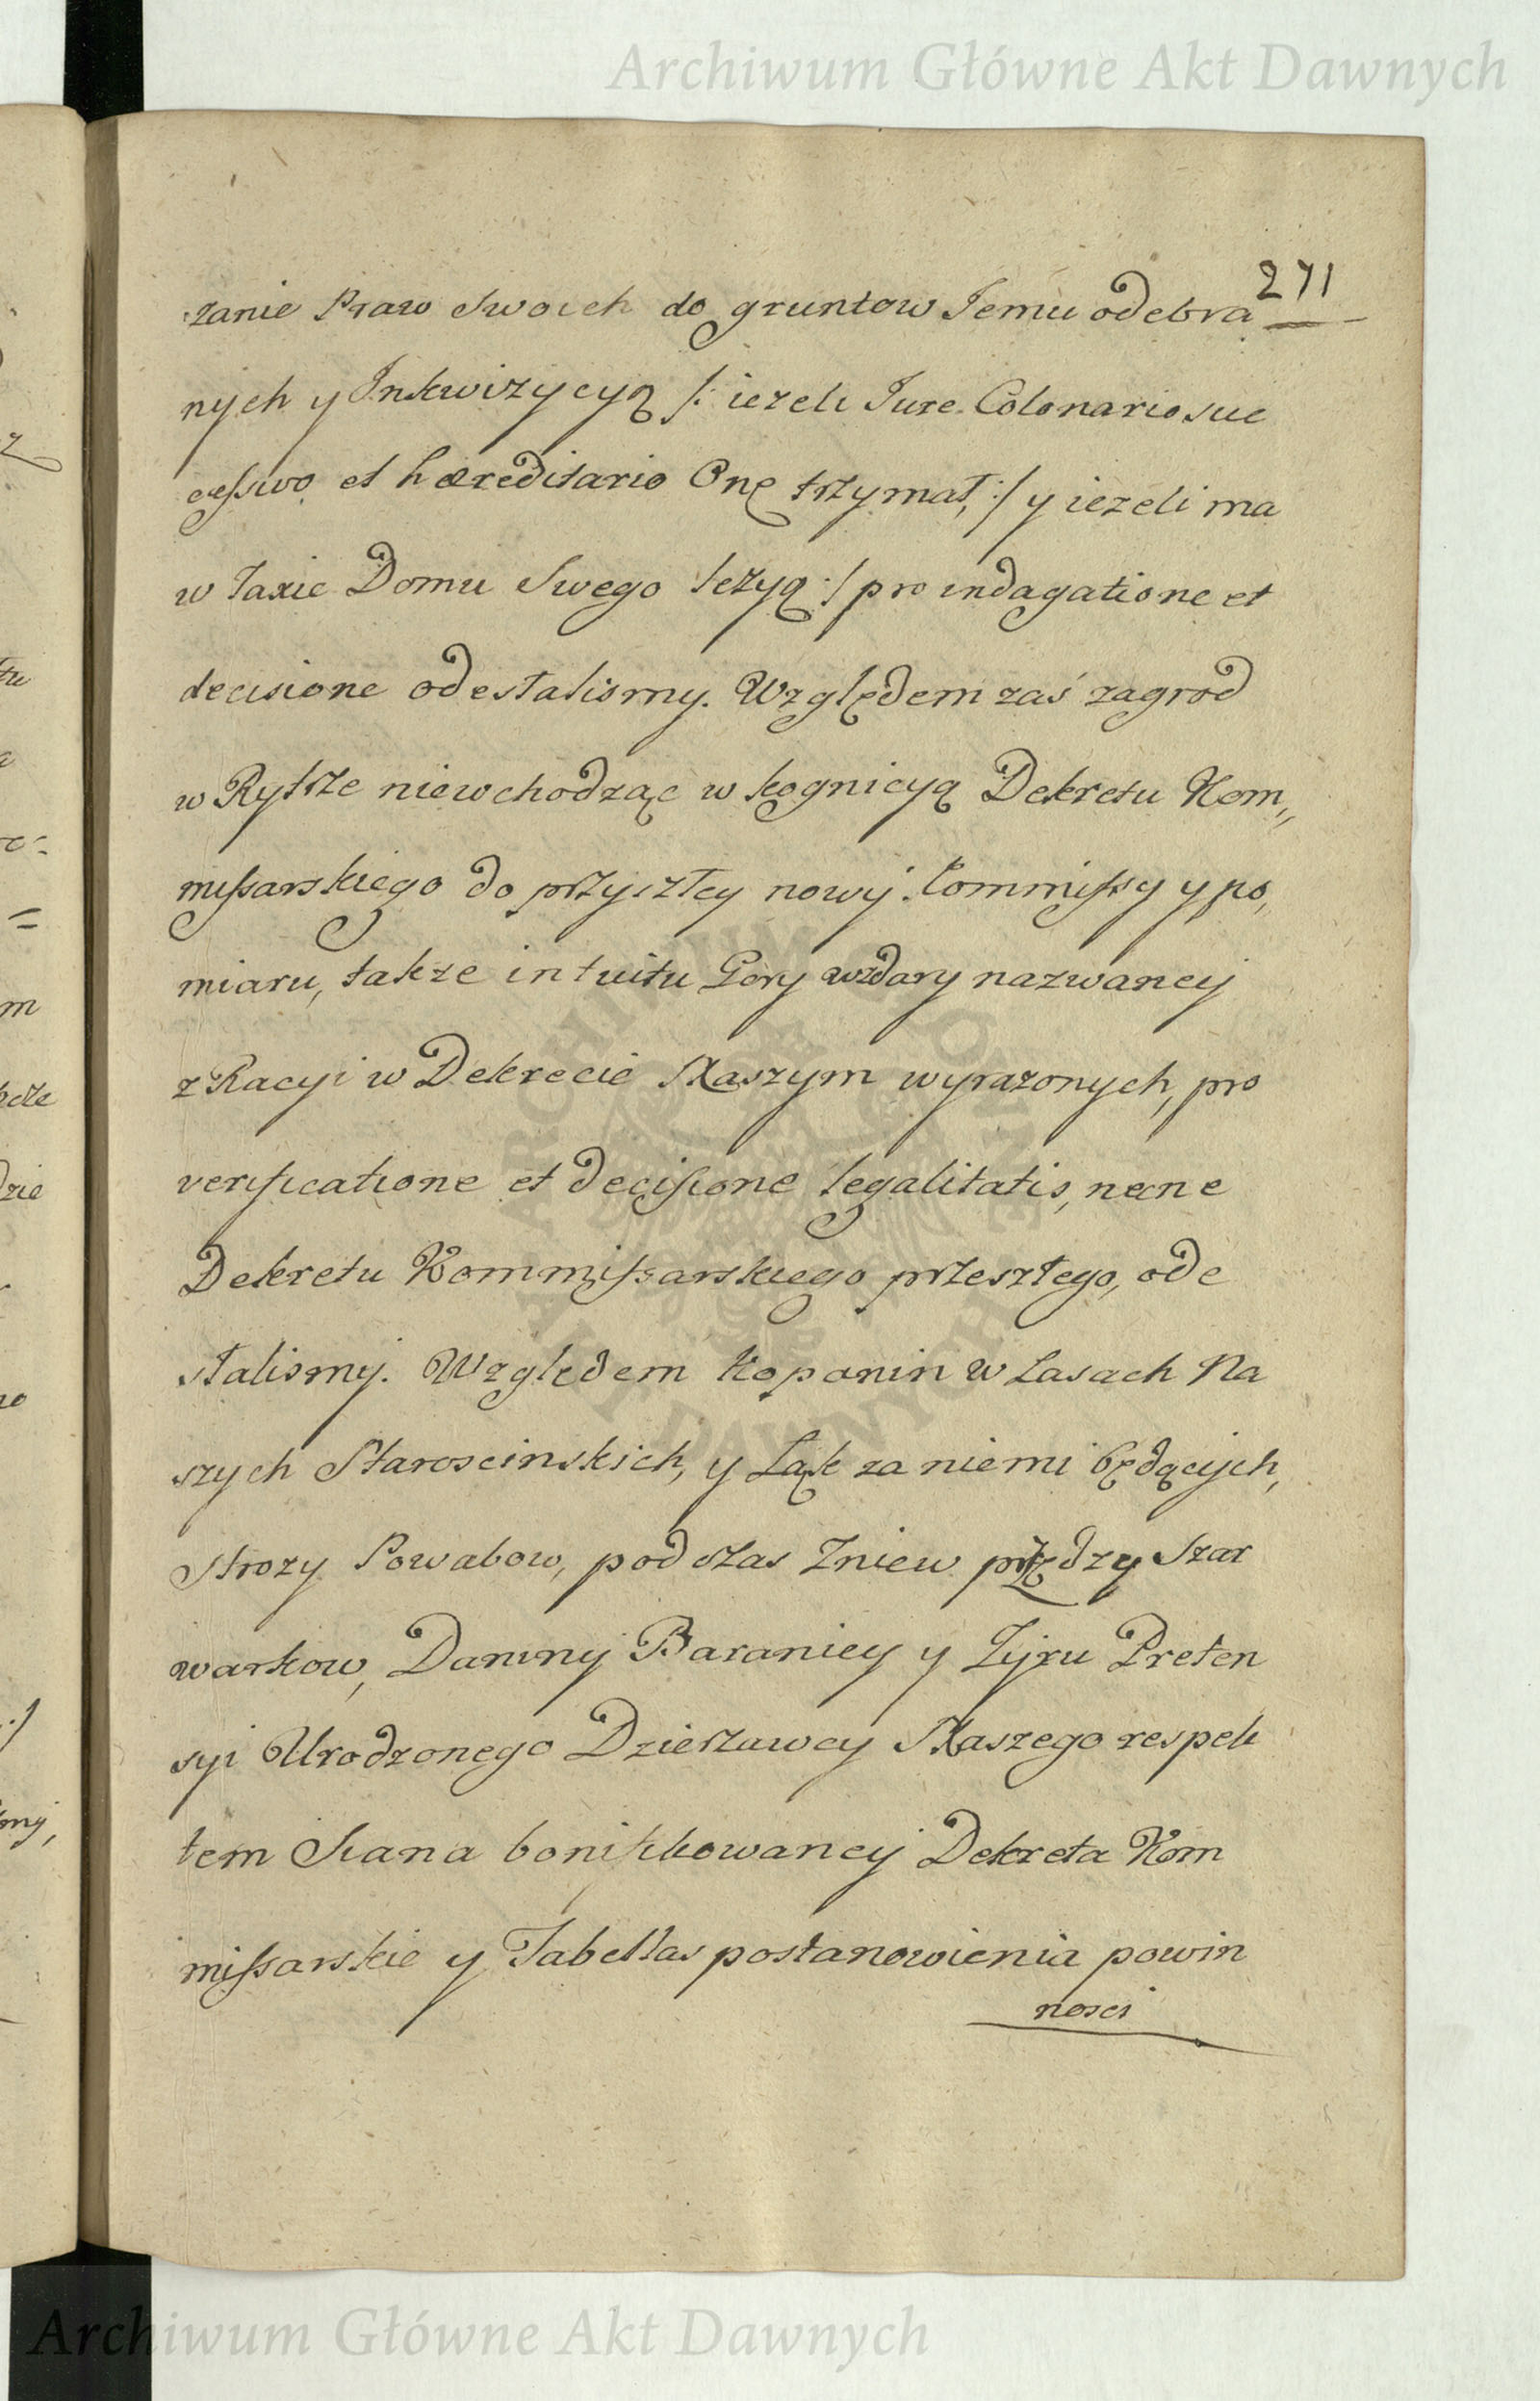 Archiwum Główne Akt Dawnych
271
zanie Praw Swoich do gruntow Jemu odebra
nych y Inkwizycyą /: iezeli Jure Colonario suc
cessivo et hæreditario One trzymał, :/ y iezeli ma
w Taxie Domu Swego leżyą :/ pro indagatione et
decisione odesłalismy. Względem zaś zagrod
w Rytrze niewchodząc w kognicyą Dekretu Kom„
missarskiego do przyszłey nowy Commissy y po„
miaru, także intuitu Gory wzdary nazwaney
z Racyi w Dekrecie Naszym wyrazonych, pro
verificatione et decisione legalitatis, necne
Dekretu Kommissarskiego przeszłego, ode
słalismy. Względem Kopanin w Lasach Na
szych Staroscinskich, y Łąk za niemi będących,
Strozy Powabow, podczas Zniew przędzy Szar
warkow, Daniny Baraniey y Zyru Preten
syi Urodzonego Dzierzawcy Naszego respek
tem Siana bonifikowaney Dekreta Kom
missarskie y Tabellas postanowienia powin
nosci
ARCHIWUM GŁÓWNE AKT DAWNYCH
Archiwum Główne Akt Dawnych